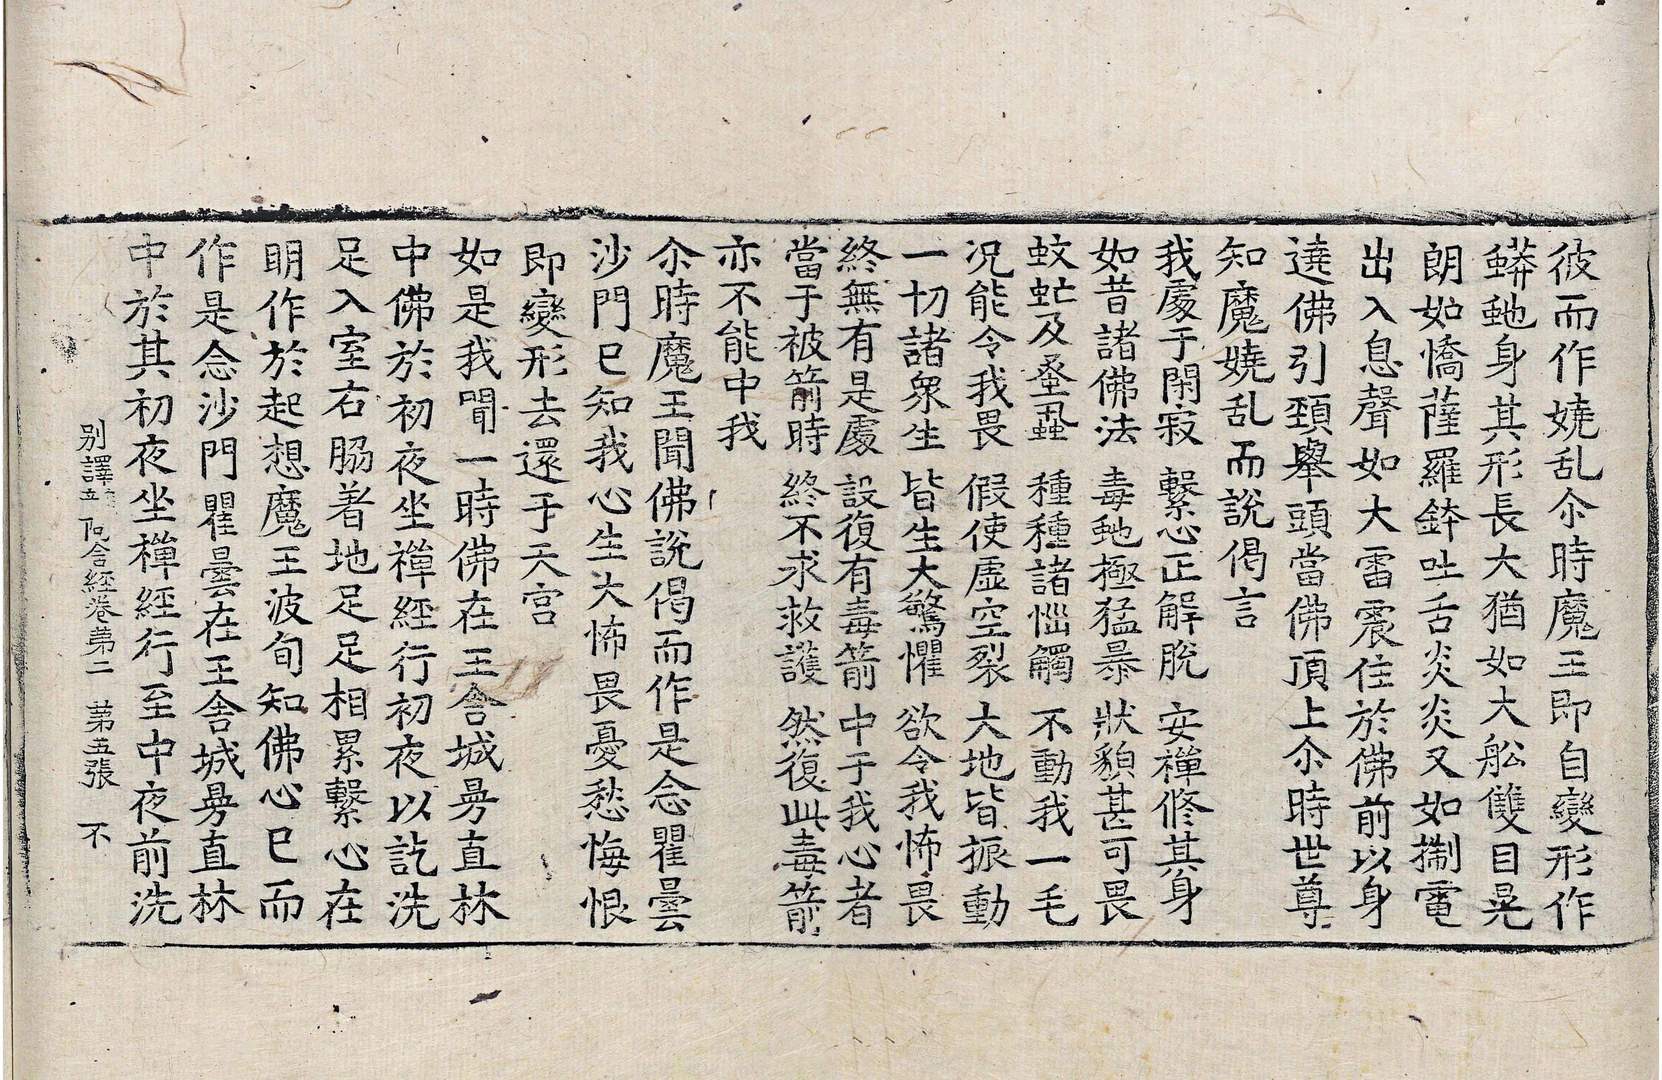 彼而作嬈乱尒時魔王即自變形作
蟒虵身其形長大猶如大舩雙目晃
朗如憍薩羅鉢吐舌炎炎又如掣電
出入息聲如大雷震住於佛前以身
遶佛引頚舉頭當佛頂上尒時世尊
知魔嬈乱而說偈言
我處于閑寂　繫心正解脫　安禪修其身
如昔諸佛法　毒虵極猛暴　狀貌甚可畏
蚊虻及蚤蝨　種種諸惱觸　不動我一毛
况能令我畏　假使虛空裂　大地皆振動
一切諸衆生　皆生大驚懼　欲令我怖畏
終無有是處　設復有毒箭　中于我心者
當于被箭時　終不求救護　然復此毒箭
亦不能中我
尒時魔王聞佛說偈而作是念瞿曇
沙門已知我心生大怖畏憂愁悔恨
即變形去還于天宮
如是我聞一時佛在王舍城曼直林
中佛於初夜坐禪經行初夜以訖洗
足入室右脇着地足足相累繫心在
明作於起想魔王波旬知佛心已而
作是念沙門瞿曇在王舍城曼直林
別譯五　阿含經卷第二　第五張　不
中於其初夜坐禪經行至中夜前洗